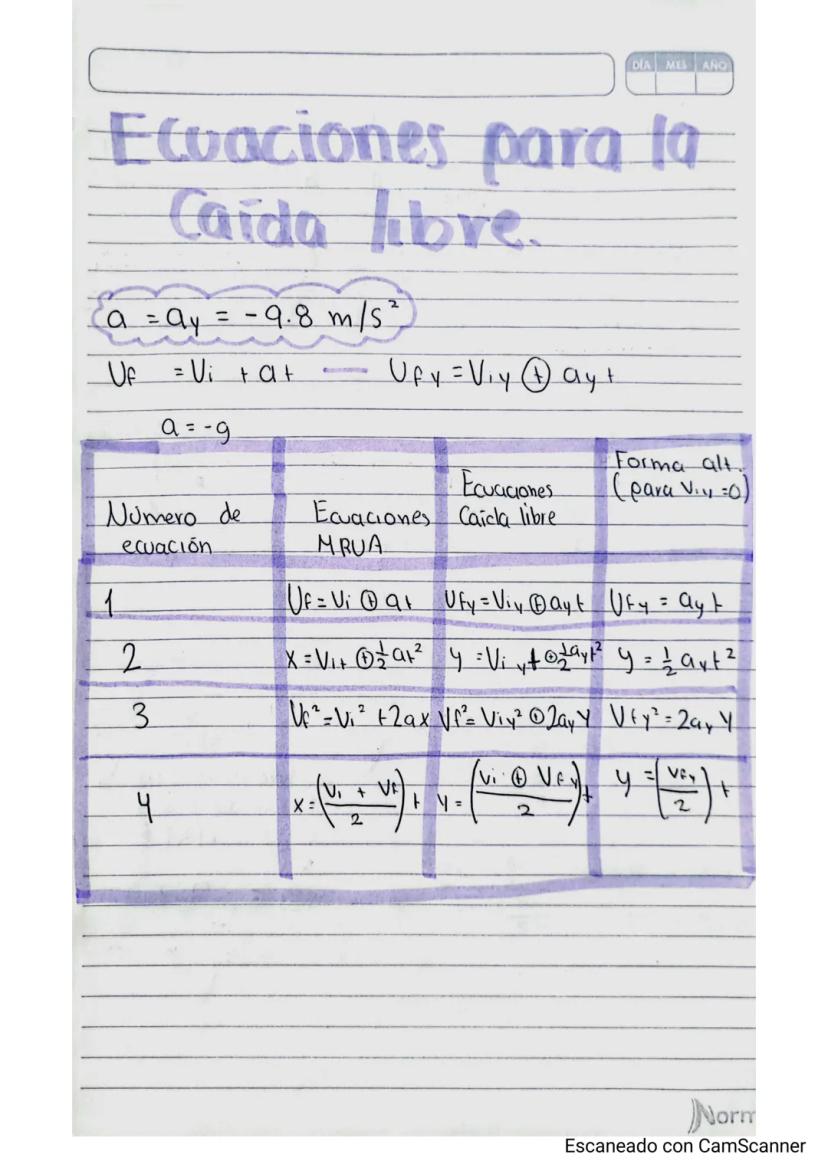 DÍA MES AÑO
Ecuaciones para la
Caída libre.
a = ay = -9.8 m/s²
Vf = Vi + at — Vfy = Viy ⊕ ayt
a = -g
Número de ecuación | Ecuaciones MRUA | Ecuaciones Caída libre | Forma alt. (para Viy = 0)
1 | Vf = Vi ⊕ at | Vfy = Viy ⊕ ayt | Vfy = ayt
2 | x = Vit ⊕ ½at² | y = Viyt ⊕ ½ayt² | y = ½ayt²
3 | Vf² = Vi² + 2ax | Vf² = Viy² ⊕ 2ayy | Vfy² = 2ayy
4 | x = (Vi + Vf / 2) t | y = (Vi ⊕ Vfy / 2) t | y = (Vfy / 2) t
Norm
Escaneado con CamScanner